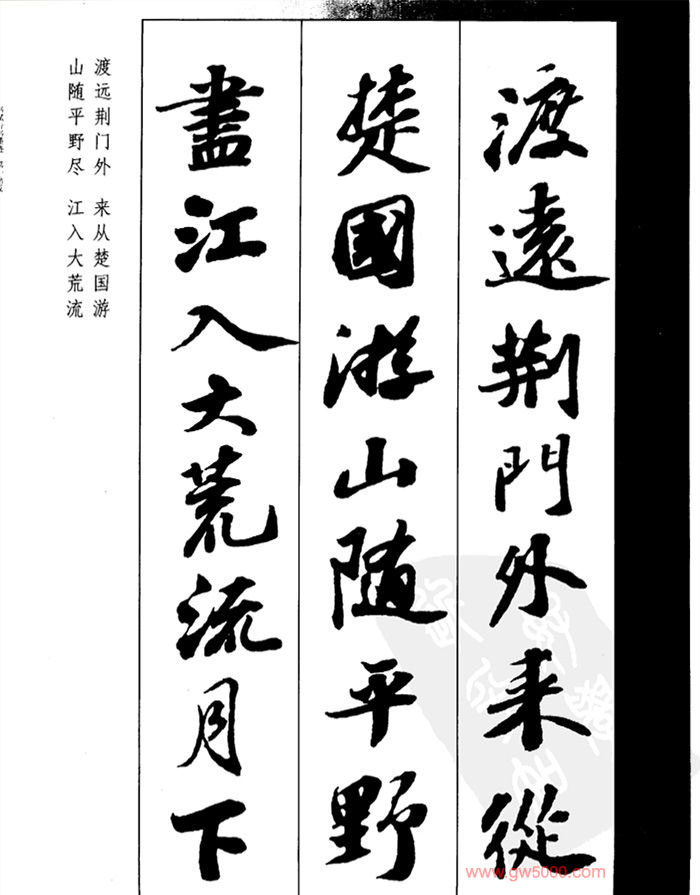 渡遠荆門外来從
楚國游山随平野
盡江入大荒流月下
渡远荆门外 来从楚国游
山随平野尽 江入大荒流
www.gw5000.com